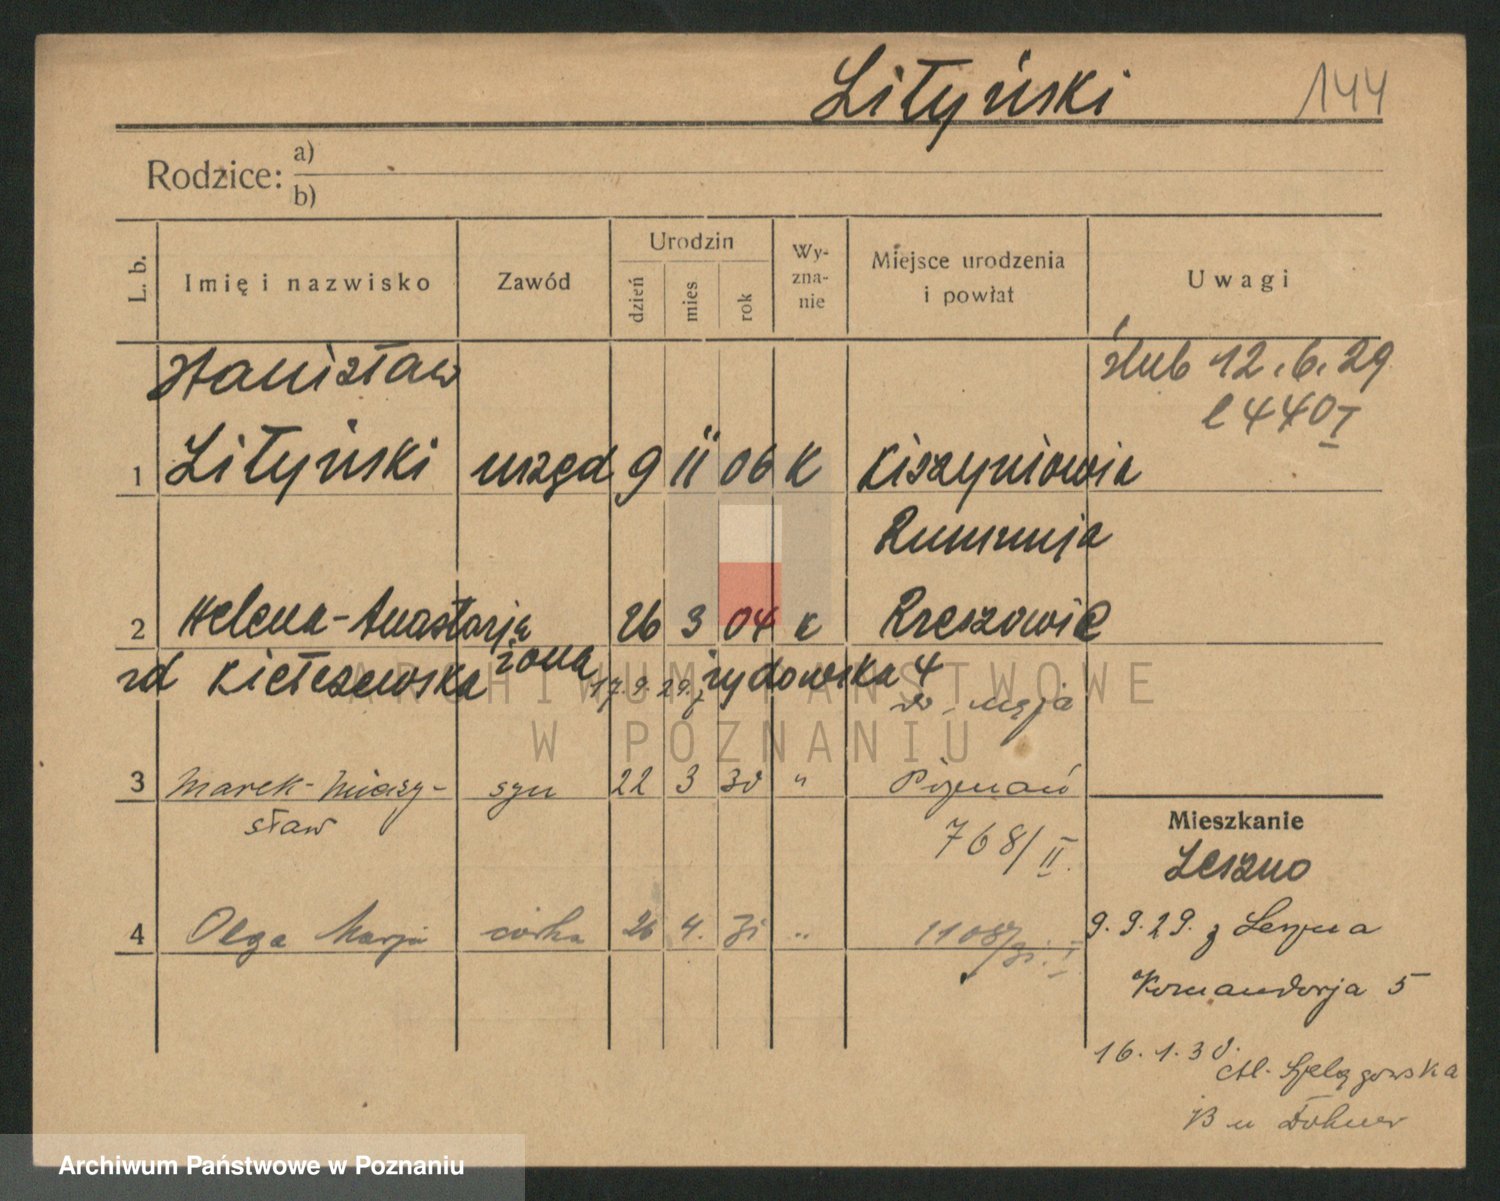 Lityński 144
Rodzice: a)
b)
L. b. Imię i nazwisko Zawód Urodzin dzień mies. rok Wy-zna-nie Miejsce urodzenia i powłat Uwagi
Stanisław ślub 12.6.29
l 440 I
1 Lityński urzęd 9 II 06 K Kiszyniowia
Rumunja
2 Helena-Anastazja 26 3 04 k Rzeszowie
zd Kiełczewska żona 17.9.29. z żydowska 4
do męża
3 Marek-Mieczy- syn 22 3 30 " Poznań
sław 768/II.
4 Olga Marja córka 26 4. 31 " 1108/31. I
Mieszkanie
Leszno
9.9.29. z Leszna
Komandorja 5
16.1.30.
Szelągowska
B u
ARCHIWUM PAŃSTWOWE
W POZNANIU
Archiwum Państwowe w Poznaniu